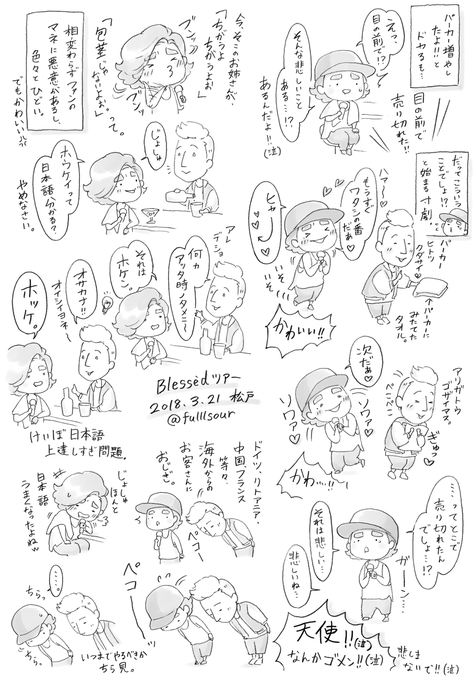 パーカー増やし
たよ!!と
ドヤるも…
目の前で
売り切れた!!
えっ、
目の前で!?
そんな悲しいこと
ある…!?
あるんだよ!!(泣)
今、そこのお姉さんが、
「ちがうよ
ちがうよぉ」
ブンッ
ブンッ
「包茎じゃ
ないよぉ」って。
相変わらずファンの
マネに悪意があるし、
色々とひどい。
でもかわいい
だってこういう
ことでしょ!?
と始まる寸劇
パーカー
ヒトツ
クダサイ
↑パーカーに
みたてた
タオル。
ハァ〜♡
もうすぐ
ワタシの番
だぁ♡
ヒャ〜♡
いそ
いそ
かわいい!!
じょしゅ
ホウケイって
日本語分かる?
やめなさい。
アレ
デショ
何カ
アッタ時ノタメニー
それは
ホケン。
オサカナ!!
オイシイヨネー
ホッケ。
けいぼ日本語
上達しすぎ問題
Blessedツアー
2018.3.21 松戸
@fulllsour
アリガトウ
ゴザイマス。
ぺこり
ぎゅっ
次だぁ♡
ソワァ♡
ソワァ♡
かわ…!!
…ってとこで
売り切れたん
でしょ…!?
ガーン…
それは悲しい…
悲しいね…
天使!!(泣)
なんかゴメン!!(泣)
悲しま
ないで!!(泣)
ドイツ、リトアニア、
中国、フランス
等々、
海外からの
お客さんに
おじぎ。
ペコー
じょしゅ
ほんと
日本語
うまくなったよねw
ペコー
……
ちらっ
いつまでやるべきか
ちら見。